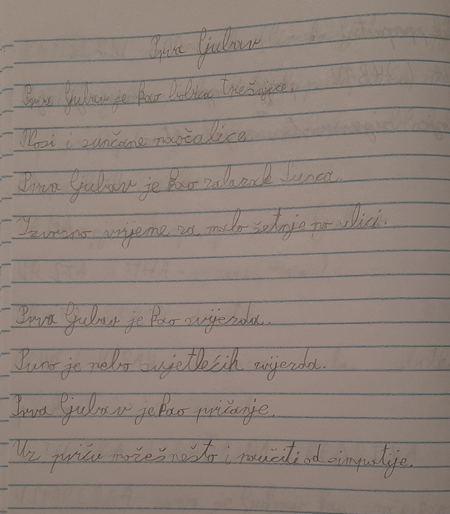 Prva ljubav
Prva ljubav je kao bobica trešnjice.
Nosi i sunčane naočalice.
Prva ljubav je kao zalazak sunca.
Izvrsno vrijeme za malo šetnje po ulici.
Prva ljubav je kao zvijezda.
Puno je nebo svjetlećih zvijezda.
Prva ljubav je kao pričanje.
Uz priču možeš nešto i naučiti od simpatije.